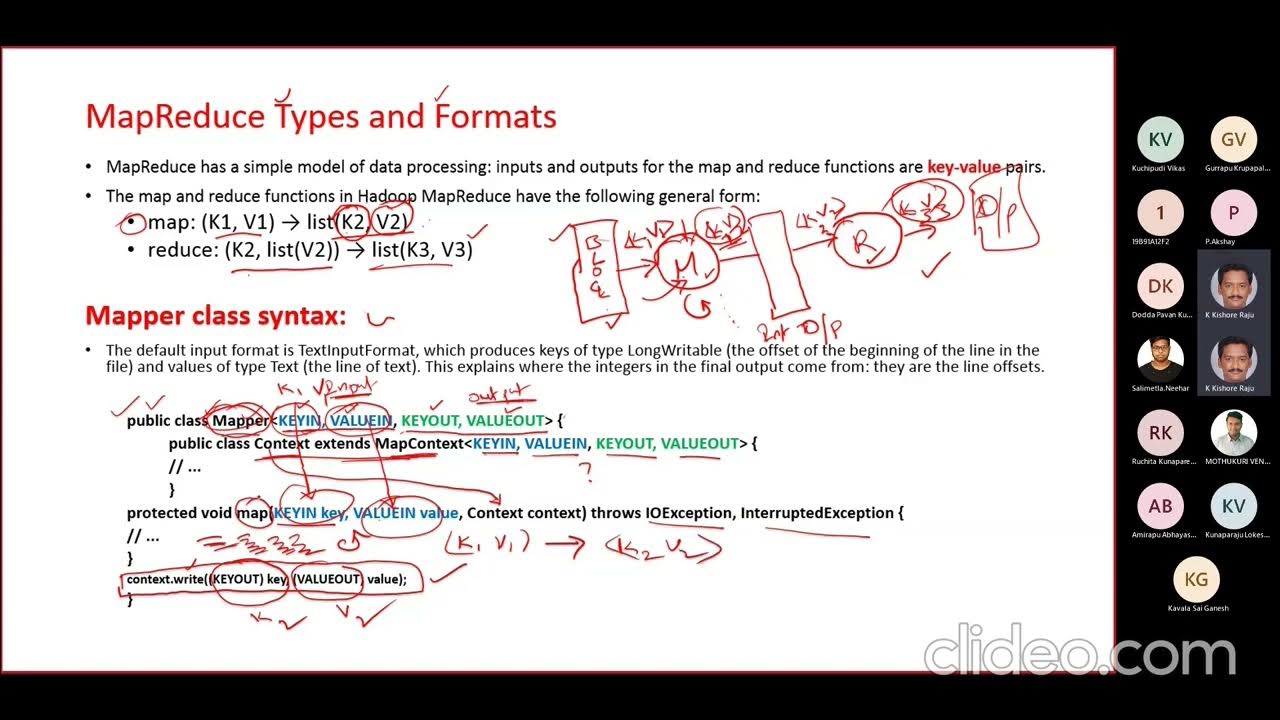 MapReduce Types and Formats
• MapReduce has a simple model of data processing: inputs and outputs for the map and reduce functions are key-value pairs.
• The map and reduce functions in Hadoop MapReduce have the following general form:
• map: (K1, V1) → list(K2, V2)
• reduce: (K2, list(V2)) → list(K3, V3)
M
R
O/P
Int O/P
Mapper class syntax:
• The default input format is TextInputFormat, which produces keys of type LongWritable (the offset of the beginning of the line in the
file) and values of type Text (the line of text). This explains where the integers in the final output come from: they are the line offsets.
input
output
public class Mapper<KEYIN, VALUEIN, KEYOUT, VALUEOUT> {
public class Context extends MapContext<KEYIN, VALUEIN, KEYOUT, VALUEOUT> {
// ...
}
?
protected void map(KEYIN key, VALUEIN value, Context context) throws IOException, InterruptedException {
// ...
(K1 V1) → <K2 V2>
}
context.write((KEYOUT) key, (VALUEOUT) value);
}
K2 V2
KV
Kuchipudi Vikas
GV
Gurrapu Krupapal...
1
19B91A12F2
P
P.Akshay
DK
Dodda Pavan Ku...
K Kishore Raju
Salimetla.Neehar
K Kishore Raju
RK
Ruchita Kunapare...
MOTHUKURI VEN...
AB
Amirapu Abhayas...
KV
Kunaparaju Lokes...
KG
Kavala Sai Ganesh
clideo.com